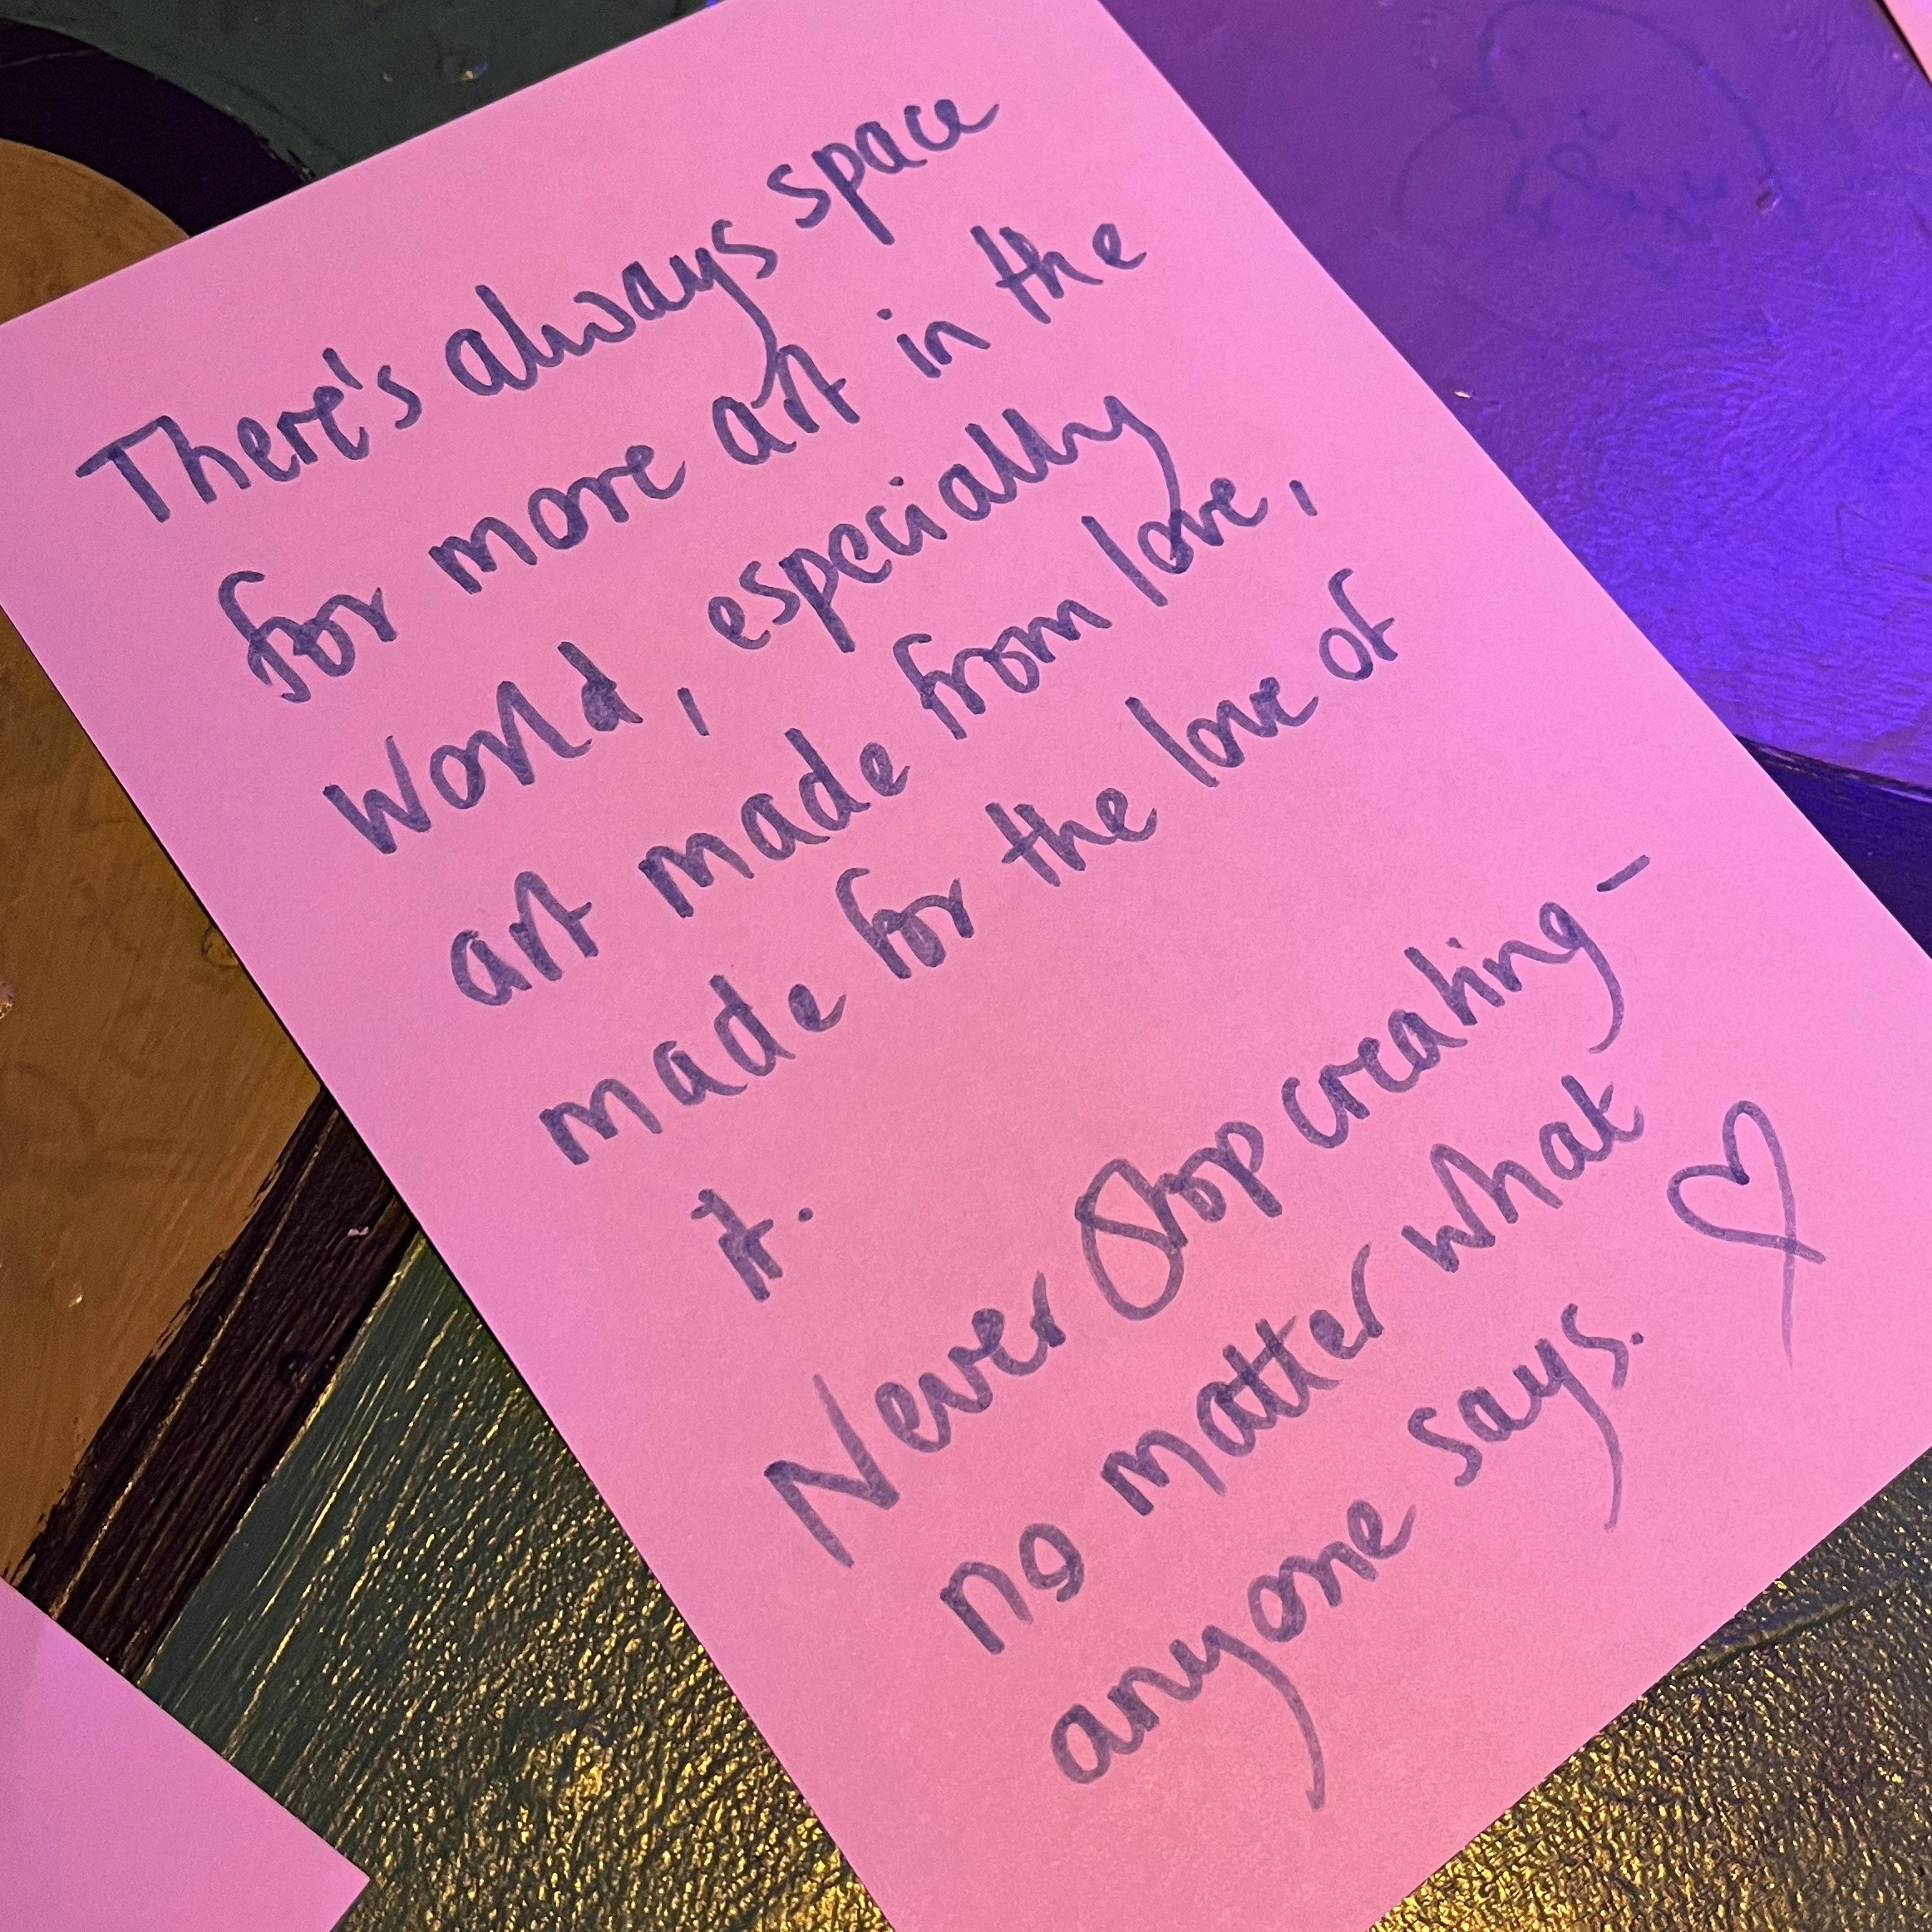 There's always space
for more art in the
world, especially
art made from love,
made for the love of
it.
Never Stop creating -
no matter what
anyone says.